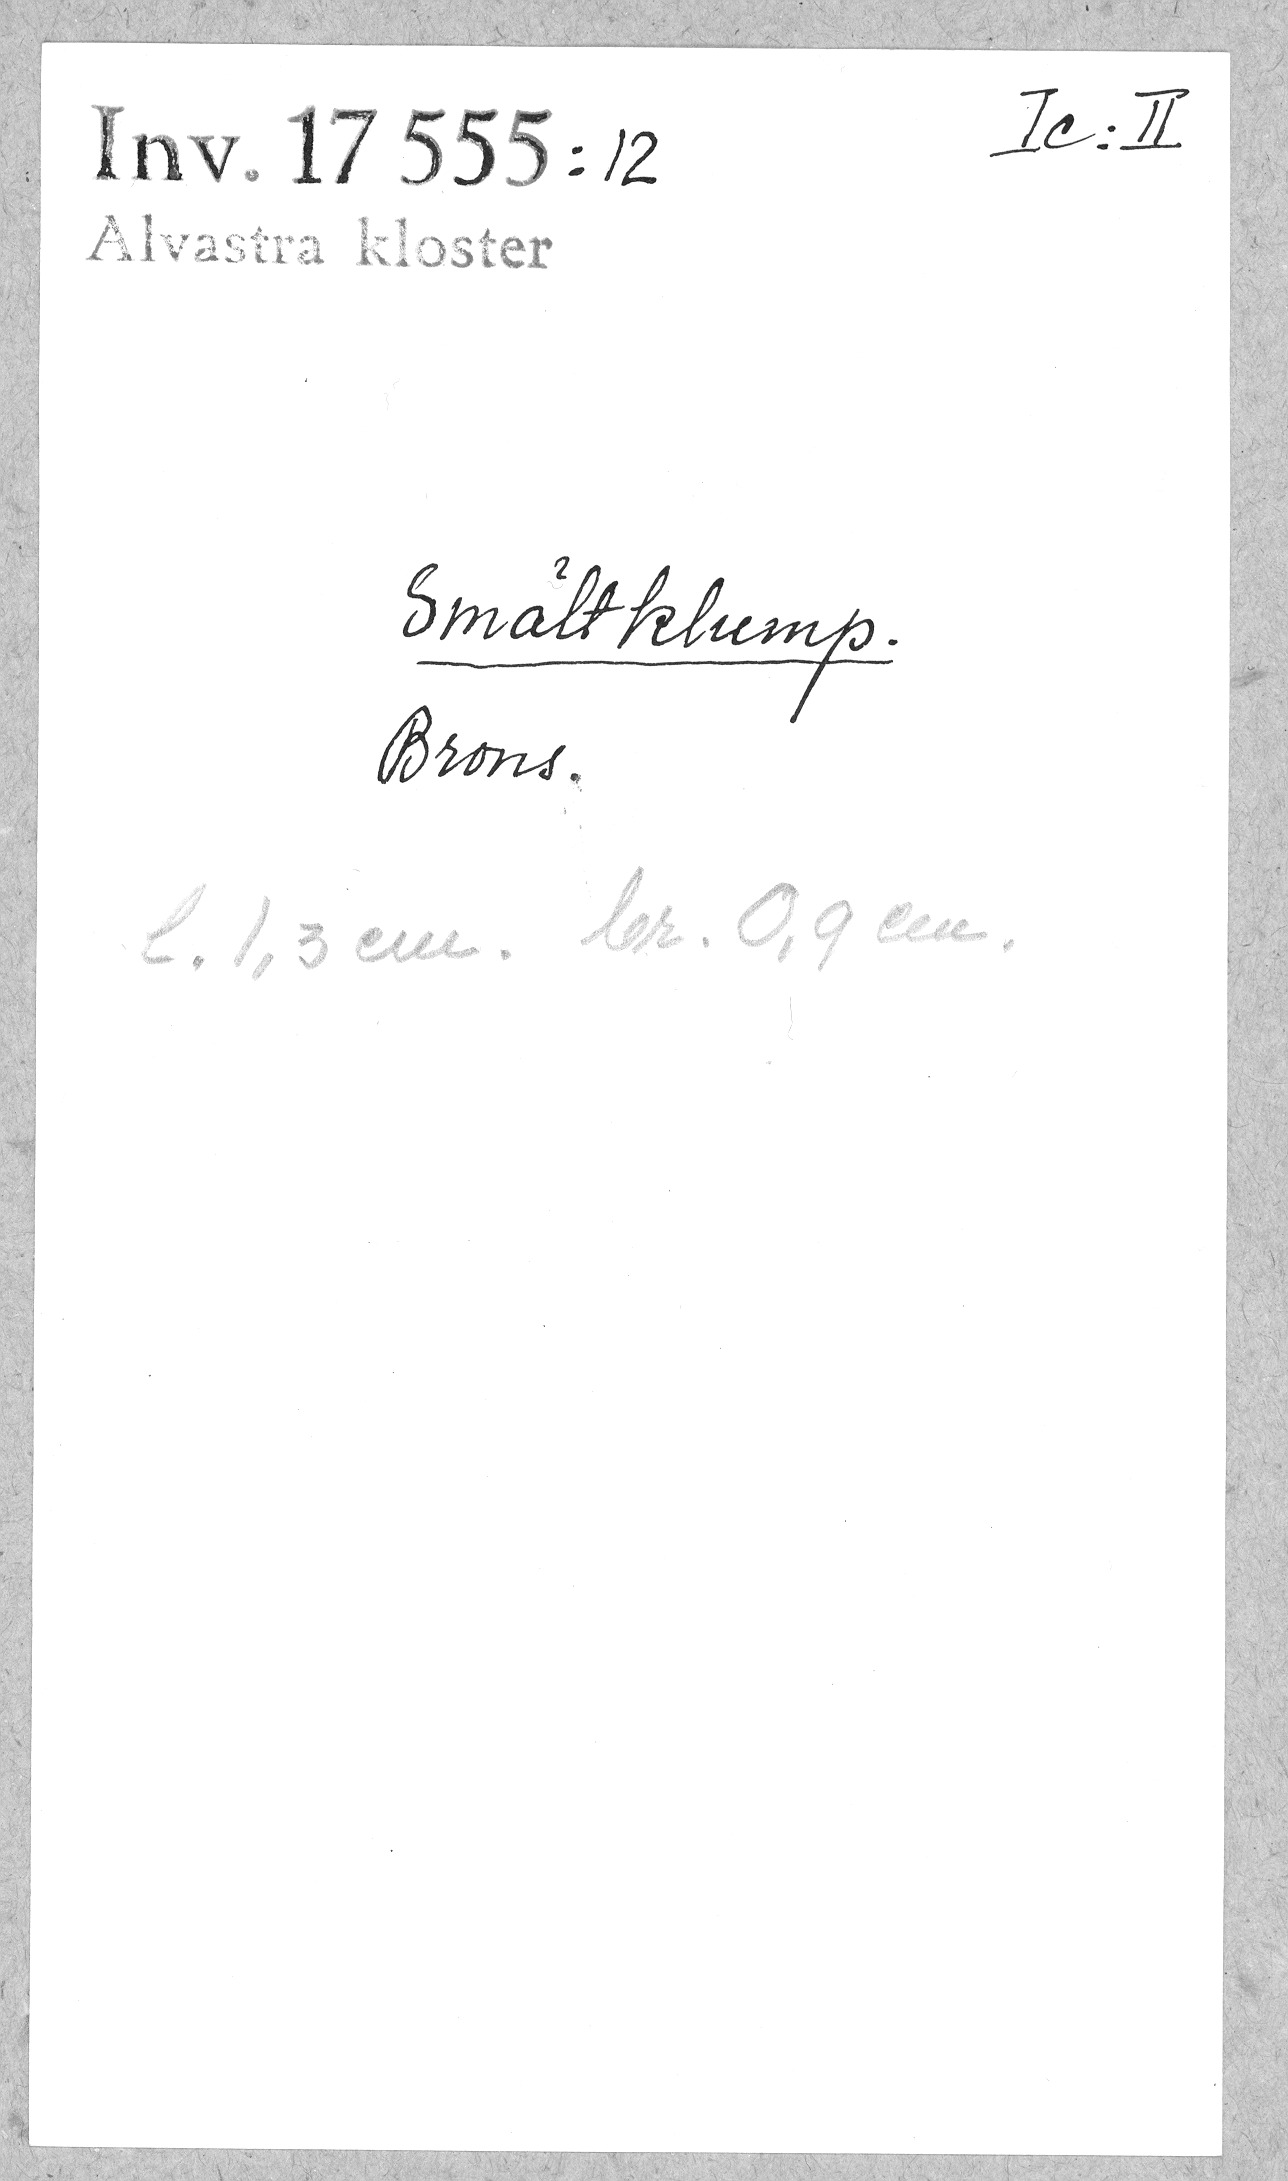 Inv. 17 555:12
Ic:II
Alvastra kloster
Smältklump.
Brons.
l. 1,3 cm. br. 0,9 cm.